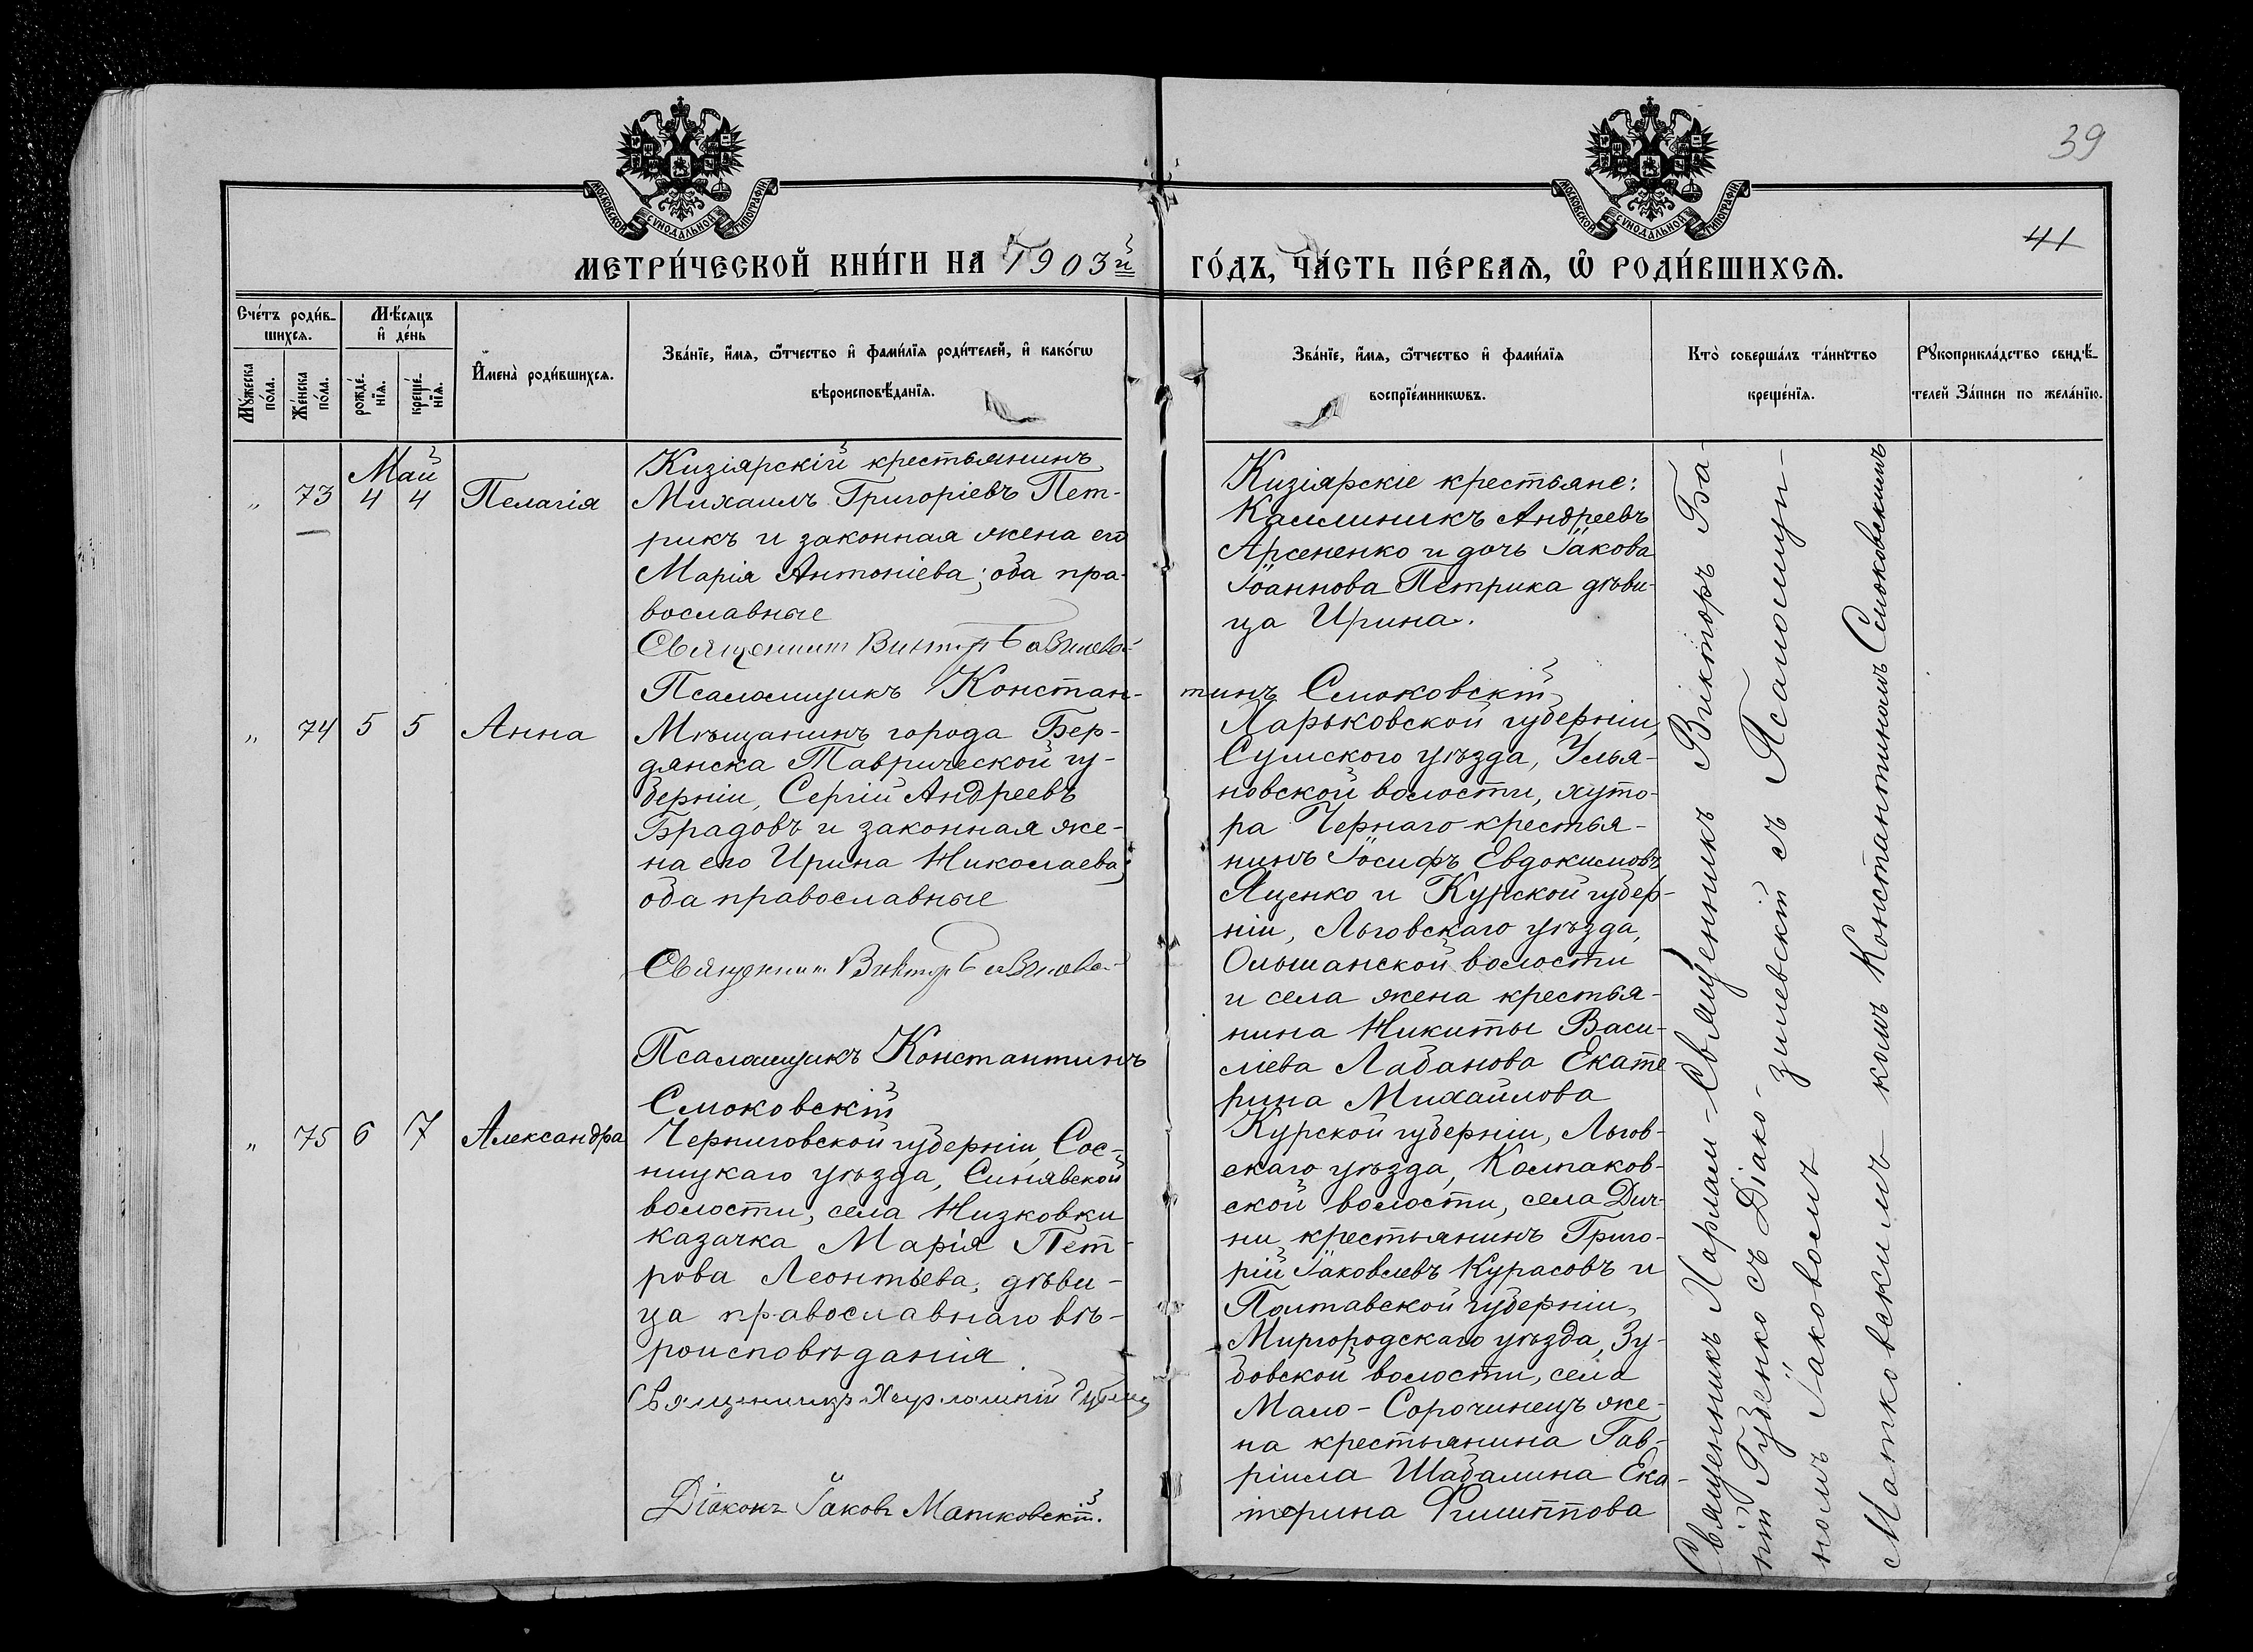 39
41
МОСКОВСКОЙ СУНОДАЛЬНОЙ ТИПОГРАФІИ
МОСКОВСКОЙ СУНОДАЛЬНОЙ ТИПОГРАФІИ
МЕТРИ́ЧЕСКОЙ КНИ́ГИ НА 1903й
ГО́ДЪ, ЧА́СТЬ ПЕ́РВАѦ, Ѡ҆ РОДИ́ВШИХСѦ.
Сче́тъ роди́в-
шихсѧ.
Му́жеска по́ла.
Же́нска по́ла.
Мѣ́сѧцъ
и҆ де́нь
рожде́-
нїѧ.
креще́-
нїѧ.
И҆мена̀ роди́вшихсѧ.
Зва́нїе, и҆́мѧ, ѻ҆́тчество и҆ фами́лїѧ роди́телей, и҆ како́гѡ
вѣроисповѣ́данїѧ.
Зва́нїе, и҆́мѧ, ѻ҆́тчество и҆ фами́лїѧ
воспрїе́мникѡвъ.
Кто̀ соверша́лъ та́инство
креще́нїѧ.
Рꙋкоприкла́дство свидѣ́-
телей За́писи по жела́нїю.
Май
„ 73 4 4 Пелагія
Кизіярскій крестьянинъ
Михаилъ Григоріевъ Пет-
рикъ и законная жена его
Марія Антоніева; оба пра-
вославные
Священникъ Викторъ
Псаломщикъ Констан-
тинъ Смоковскій
Кизіярскіе крестьяне:
Каллиникъ Андреевъ
Арсененко и дочь Іакова
Іоаннова Петрика дѣви-
ца Ирина.
„ 74 5 5 Анна
Мѣщанинъ города Бер-
дянска Таврической гу-
берніи, Сергій Андреевъ
Брадовъ и законная же-
на его Ирина Николаева;
оба православные
Священникъ Викторъ
Псаломщикъ Константинъ
Смоковскій
Харьковской губерніи,
Сумского уѣзда, Улья-
новской волости, хуто-
ра Чернаго крестья-
нинъ Іосифъ Евдокимовъ
Яценко и Курской губер-
ніи, Льговскаго уѣзда,
Ольшанской волости
и села жена крестья-
нина Никиты Васи-
ліева Лабанова Екате-
рина Михайлова
„ 75 6 7 Александра
Черниговской губерніи, Сос-
ницкаго уѣзда, Синявской
волости, села Низковки
казачка Марія Пет-
рова Леонтіева, дѣви-
ца православнаго вѣ-
роисповѣданія.
Священникъ Харлампій
Діаконъ Іаковъ Матковскій.
Курской губерніи, Льгов-
скаго уѣзда, Колпаков-
ской волости, села Дич-
ни крестьянинъ Григо-
рій Іаковлевъ Курасовъ и
Полтавской губерніи,
Миргородскаго уѣзда, Зу-
бовской волости, села
Мало-Сорочинецъ же-
на крестьянина Гав-
ріила Шабалина Ека-
терина Филиппова
Священникъ Викторъ Ба-
зилевскій съ Псаломщи-
комъ Константиномъ Смоковскимъ
Священникъ Харлам-
пій Губенко съ Діако-
номъ Іаковомъ
Матковскимъ